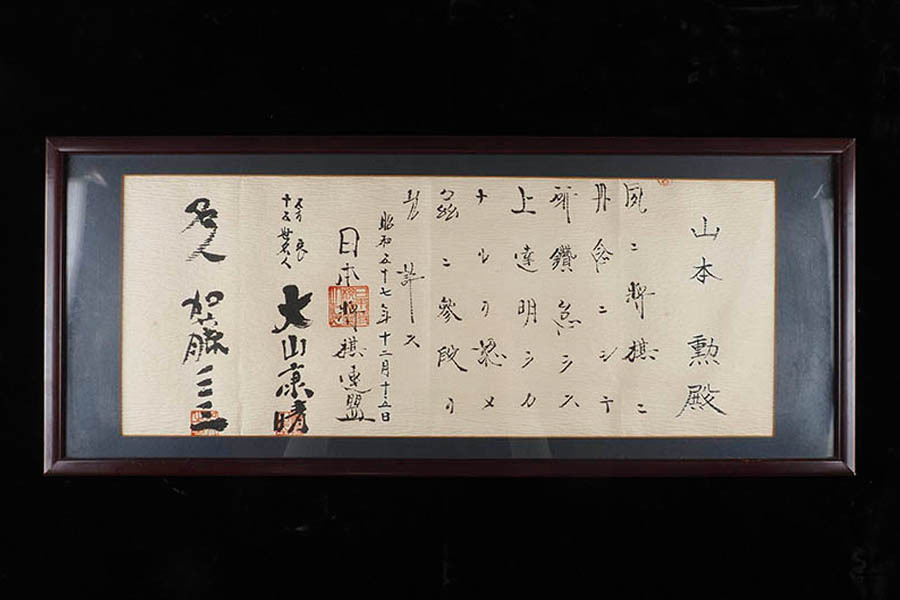 山本 勲殿
夙ニ將棋ニ
丹念ニシテ
研鑽怠ラス
上達明ラカ
ナルヲ認メ
茲ニ參段ヲ
允許ス
昭和五十七年十二月十五日
日本將棋連盟
会長
十五世名人 大山康晴
名人 加藤一二三